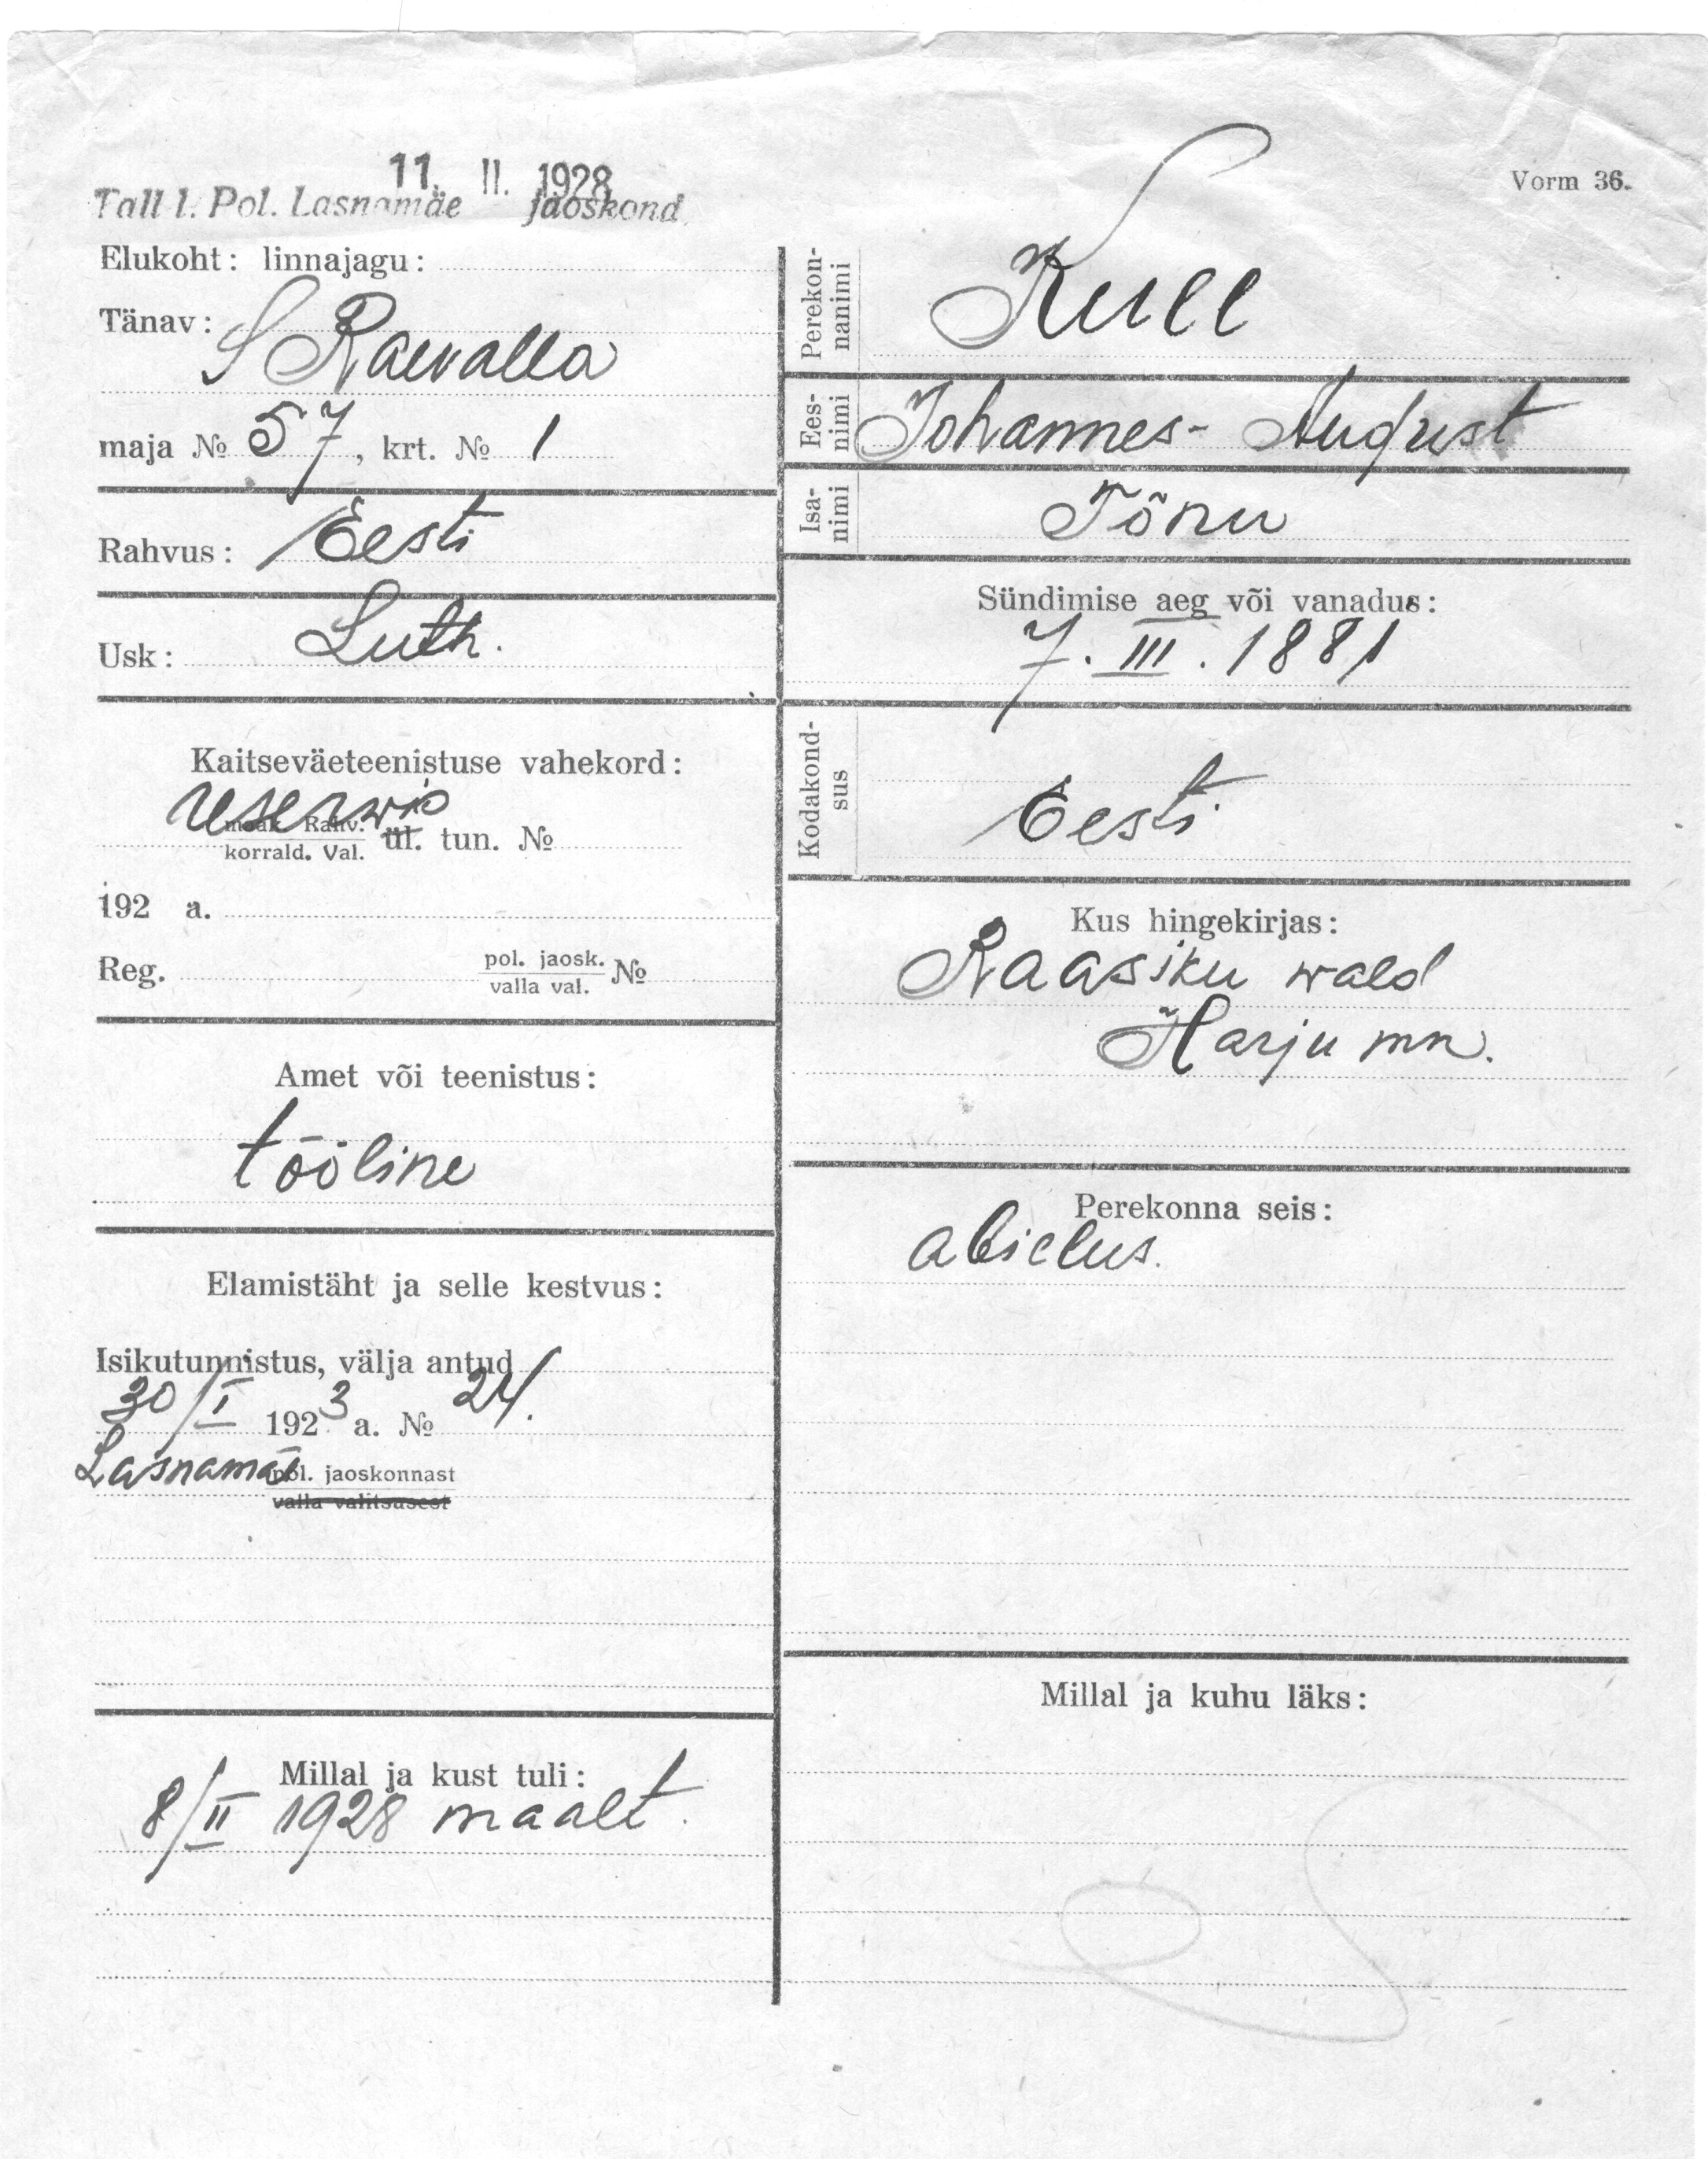 11. II. 1928
Tall 1. Pol. Lasnamäe jaoskond.
Vorm 36.
Elukoht: linnajagu:
Tänav:
S Raevalla
maja № 57, krt. № 1
Rahvus: Eesti
Usk: Luth.
Kaitseväeteenistuse vahekord:
reservis
Rahv.
korrald. Val. ül. tun. №
192 a.
Reg. pol. jaosk. №
valla val.
Amet või teenistus:
tööline
Elamistäht ja selle kestvus:
Isikutunnistus, välja antud
30/I 1923 a. № 24.
Lasnamäe pol. jaoskonnast
valla valitsusest
Millal ja kust tuli:
8/II 1928 maalt.
Perekon-
nanimi
Kull
Ees-
nimi
Johannes-August
Isa-
nimi
Tõnu
Sündimise aeg või vanadus:
7. III. 1881
Kodakond-
sus
Eesti
Kus hingekirjas:
Raasiku wald
Harju mn.
Perekonna seis:
abielus.
Millal ja kuhu läks: